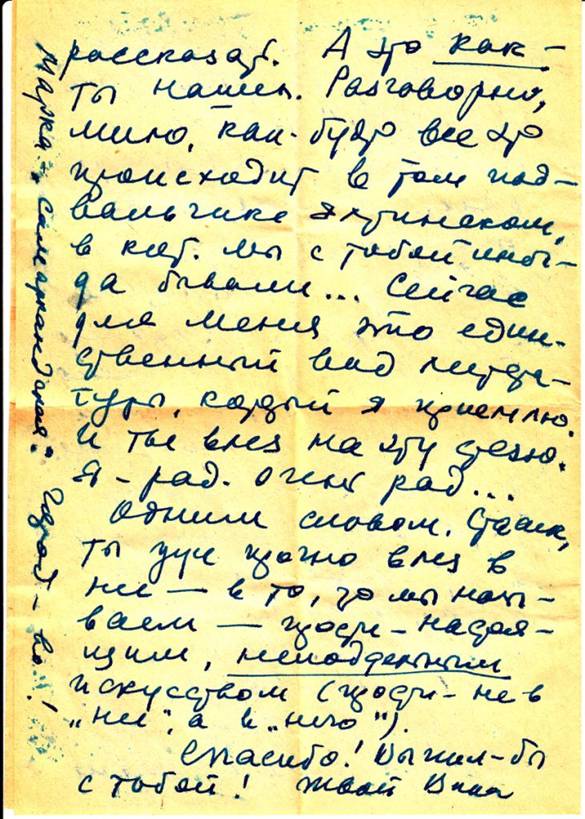 рассказат. А это как-
ты нашел. Разговорно,
мило, как-будто все это
происходит в том под-
вальчике ялтинском,
в кот. мы с тобой иног-
да бывали... Сейчас
для меня это един-
ственный вид литера-
туры, который я приемлю.
И ты влез на эту стезю.
Я - рад. Очень рад...
Одним словом, Стасик,
ты уже прочно влез в
нее — в то, что мы назы-
ваем — прости - настоя-
щим, неподдельным
искусством (прости - не в
„нее", а в „него").
Спасибо! Выпил-бы
с тобой! Твой Вика
Марка - „самаркандская". Город - во!